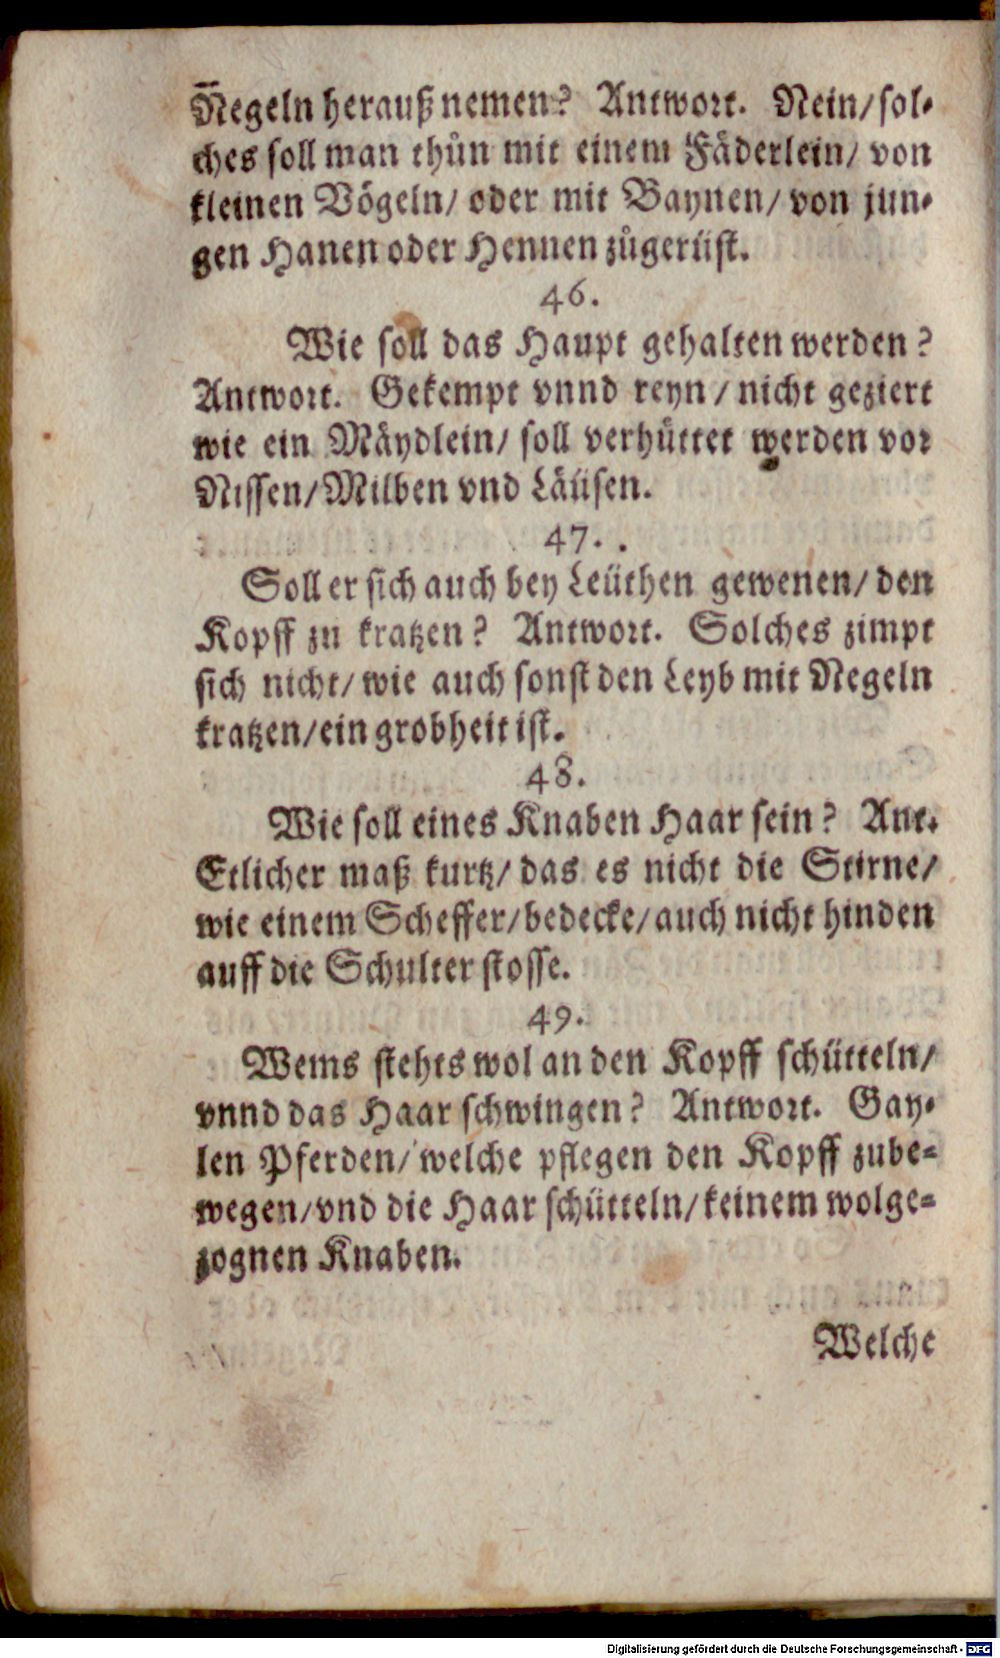 Negeln herauß nemen? Antwort. Nein/ sol-
ches soll man thůn mit einem Fäderlein/ von
kleinen Vögeln/ oder mit Baynen/ von jun-
gen Hanen oder Hennen zůgerüst.
46.
Wie soll das Haupt gehalten werden?
Antwort. Gekempt vnnd reyn/ nicht geziert
wie ein Mäydlein/ soll verhüttet werden vor
Nissen/ Milben vnd Läüsen.
47.
Soll er sich auch bey Leüthen gewenen/ den
Kopff zu kratzen? Antwort. Solches zimpt
sich nicht/ wie auch sonst den Leyb mit Negeln
kratzen/ ein grobheit ist.
48.
Wie soll eines Knaben Haar sein? Ant.
Etlicher maß kurtz/ das es nicht die Stirne/
wie einem Scheffer/ bedecke/ auch nicht hinden
auff die Schulter stosse.
49.
Wems stehts wol an den Kopff schütteln/
vnnd das Haar schwingen? Antwort. Gay-
len Pferden/ welche pflegen den Kopff zube-
wegen/ vnd die Haar schütteln/ keinem wolge-
zognen Knaben.
Welche
Digitalisierung gefördert durch die Deutsche Forschungsgemeinschaft - DFG